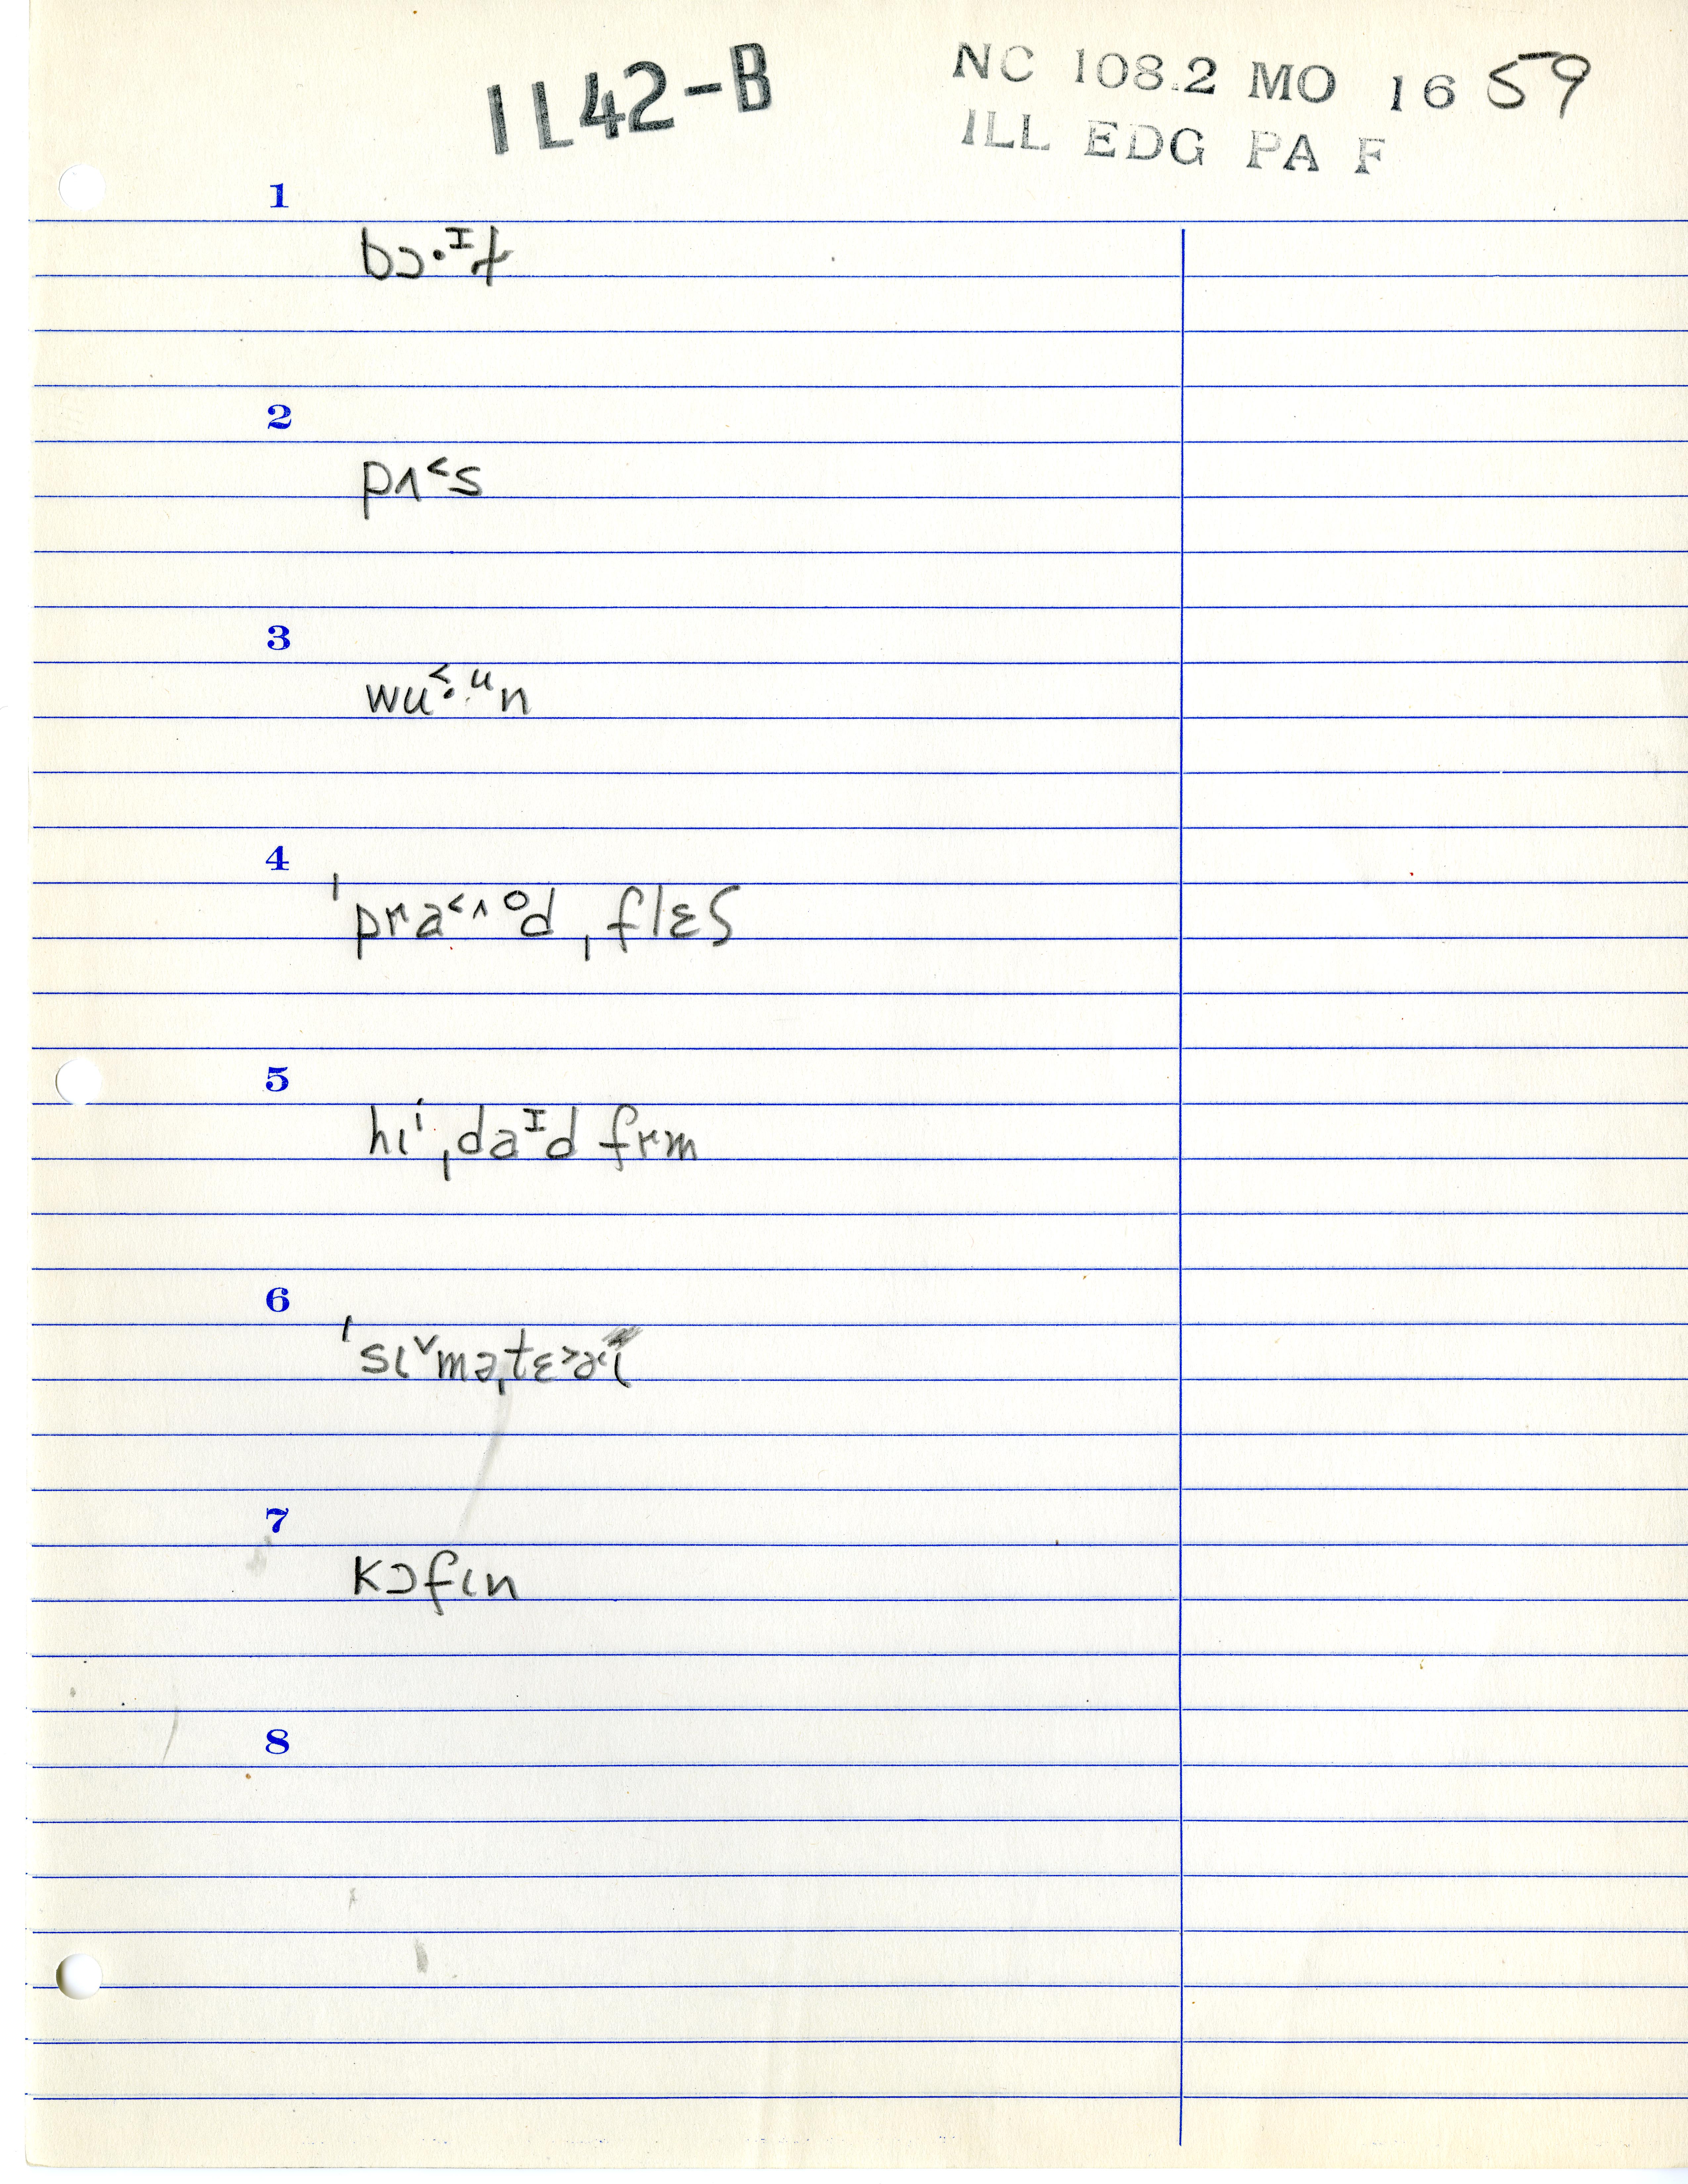 1L42-B
NC 108.2 MO 16 59
ILL EDG PA F
1
bɔ·ᴵɫ
2
pʌ˂s
3
wu˂·ᵘn
4
ˈpra˂^ᵒd ˌflɛʃ
5
hɩⁱ ˌdaᴵd frm
6
ˈsɩ˅məˌtɛ˃ɚ˂i
7
kɔfɩn
8